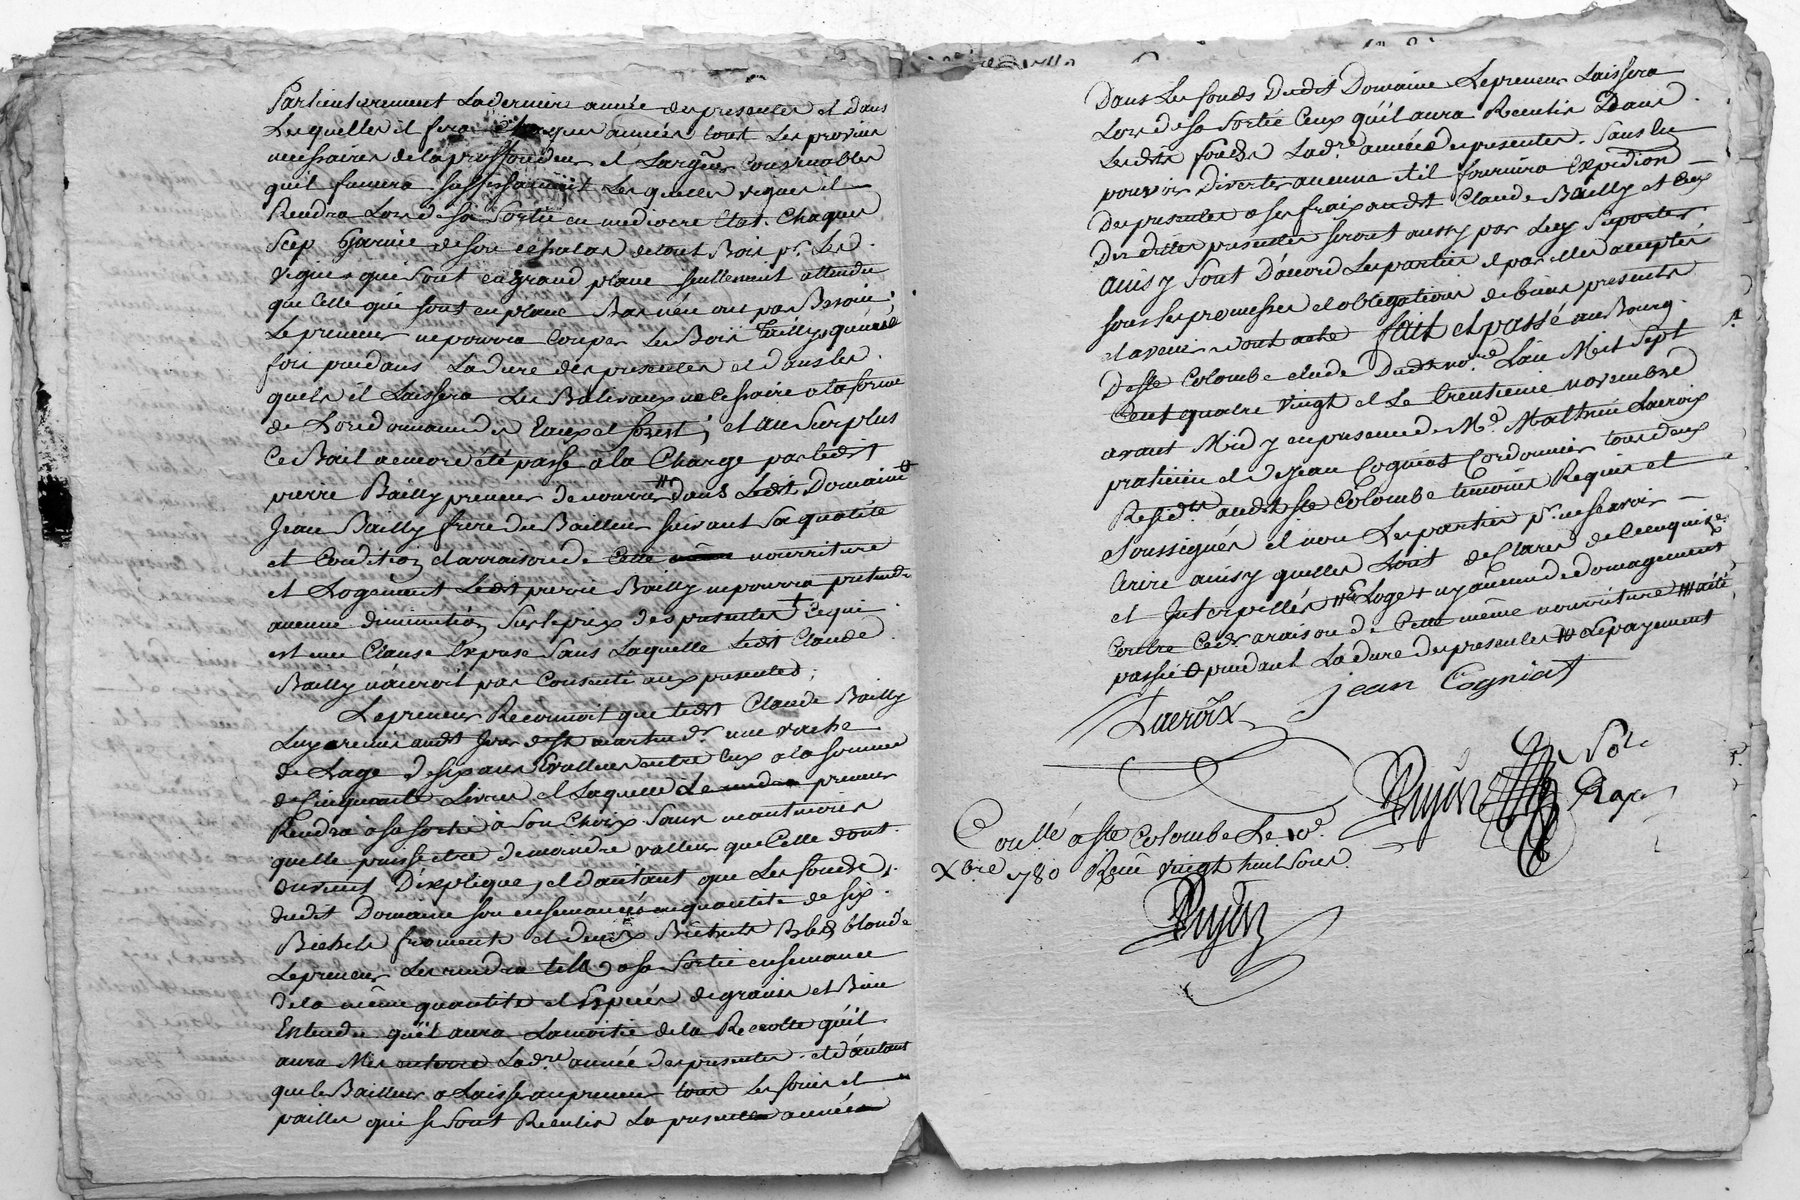 Particulierement Laderniere année des presentes et dans
Lesquelles il fera chaques années tout Les provins
necessaires de la proffondeur et Largeur Convenables
qu'il fumera suffisamment Lesquelles vignes il
Rendra Lors de sa Sortie en mediocre Etat. Chaques
Scep Garnie de son echalas de tout Bois pr. Les d.
vignes qui Sont en grand plane seullement attendu
que Celle qui sont en plane Bas n'en ont pas Besoin;
Le preneur ne pourra Couper Les Bois Tailly qu'une
fois pendans La dure des presentes et dans les
quels il Laissera Les Balivaux necessaire a la forme
de Lordonnance des Eaux et forest; et au Surplus
Ce Bail a encore été passé a la Charge par ledt
pierre Bailly preneur de nourrir # dans Ledt Domaine
Jean Bailly frere du Bailleur suivant Sa qualité
et Condition et arraison de Cette nourriture
et Logement Ledt pierre Bailly ne pourra pretendre
aucune diminution Sur le prix des presentes + Ce qui
est une Clause Expresse Sans Laquelle Ledt Claude
Bailly n'auroit pas Consenti aux presentes;
Le preneur Reconnoit que Ledt Claude Bailly
Luy a remis audt Jour de St martin dr une vache
de Lage de six ans Evalluée entre Eux a la Somme
de Cinquante Livres et Laquelle Le preneur
Rendra a sa Sortie a Son Choix Sans neantmoins
quelle puisse etre de moindre valleur que Celle dont
on vient D'expliquer, et d'autant que Les fonds
dudit Domaine son ensemancés en quantite de six
Bichets froment et deux Bichets Bled blondé
Le preneur Les rendra telle a sa Sortie ensemancé
de la même quantité et Especes de grains et Bien
Entendu qu'il aura La moitié de la Recolte qu'il
aura Mis en terre Lad.re année des presentes. et d'autant
que le Bailleur a Laissé au preneur tous Les foins et
pailles qui se Sont Reculis La presente année
Dans Les fonds Dudit Domaine Le preneur Laissera
Lors de sa Sortie Ceux qu'il aura Recentis Dans
Lesdts fonds Lad.re année des presentes. Sans en
pouvoir divertir aucuns et il fournira Expedion
Des presentes a ses fraix audt Claude Bailly et Ceux
Desdittes presentes seront aussy par Luy Suportés
ainsy Sont D'accord Les parties et par elles acceptés
sous Les promesses et obligations de biens presents
et avenir dont acte fait et passé au Bourg
De Ste Colombe etude Dudt nore. L'an Mil Sept
Cent quatre vingt et Le trentieme novembre
avant Midy en presence de Me. Mathieu Lacroix
praticien et de Jean Cogniat Cordonnier tous deux
Residts audt Ste Colombe temoins Requis et
Soussignés et non Les parties pr. ne scavoir
Ecrire ainsy quelles L'ont declarés de Ce enquise
et Interpellés # Loge + ny aucun dedomagement
Contre Ced. araison de Cette même nourriture ## a été
passé pendant La dure des presentes Le payement
jean Cogniat
Lacroix
Pujon
Note
Roya
Coullé a Ste Colombe Le 10e.
Xbre 1780 Reçu vingt huit Sous
Pujon